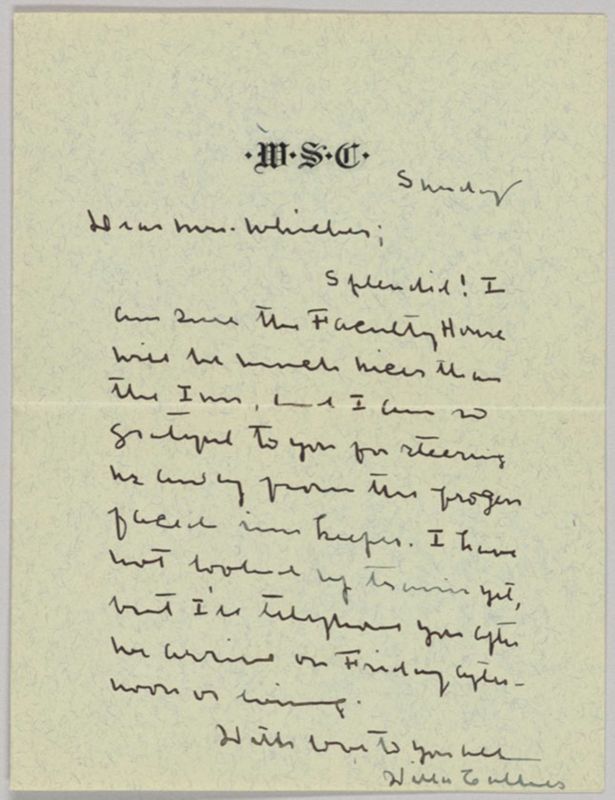 ·W·S·C·
Sunday
Dear Mrs. Whicher;
Splendid! I
am sure the Faculty House
will be much nicer than
the Inn, and I am so
grateful to you for steering
us away from the frozen
faced inn keeper. I have
not looked up trains yet,
but I'll telephone you after
we arrive on Friday after-
noon or evening.
With love to you all
Willa Cather